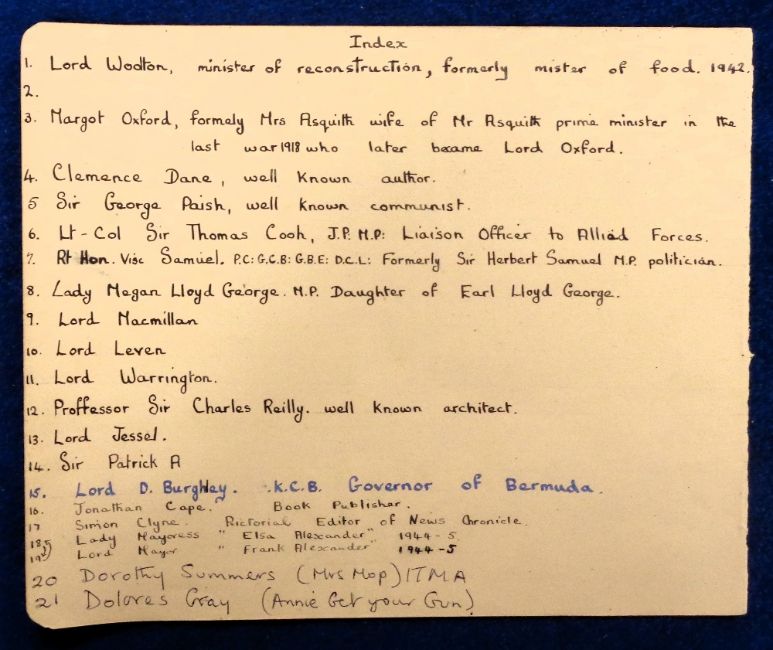 Index
1. Lord Woolton, minister of reconstruction, formerly mister of food. 1942.
2.
3. Margot Oxford, formely Mrs Asquith wife of Mr Asquith prime minister in the
last war 1918 who later became Lord Oxford.
4. Clemence Dane, well known author.
5 Sir George Paish, well known communist.
6. Lt-Col Sir Thomas Cook, J.P. M.P: Liaison Officer to Allied Forces.
7. Rt Hon. Visc Samuel. P.C: G.C.B: G.B.E: D.C.L: Formerly Sir Herbert Samuel M.P. politician.
8. Lady Megan Lloyd George. M.P. Daughter of Earl Lloyd George.
9. Lord Macmillan
10. Lord Leven
11. Lord Warrington.
12. Proffessor Sir Charles Reilly. well known architect.
13. Lord Jessel.
14. Sir Patrick A
15. Lord D. Burghley. K.C.B. Governor of Bermuda.
16. Jonathan Cape. Book Publisher.
17 Simon Clyne. Pictorial Editor of News Chronicle.
18 Lady Mayoress " Elsa Alexander " 1944-5.
19 Lord Mayor " Frank Alexander " 1944-5
20 Dorothy Summers (Mrs Mop) ITMA
21 Dolores Gray (Annie Get your Gun)